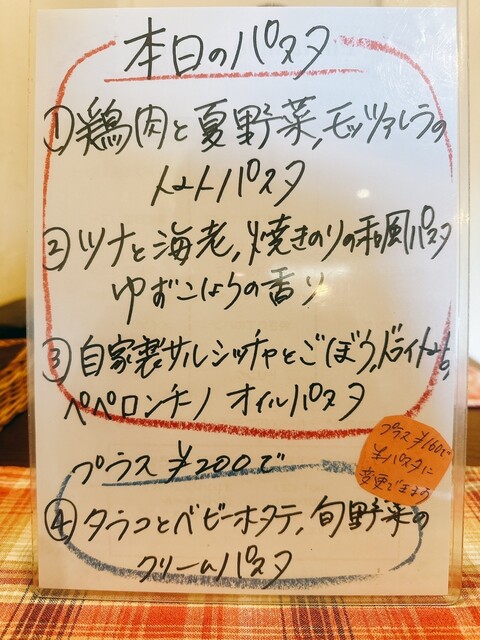 本日のパスタ
①鶏肉と夏野菜,モッツァレラの
トマトパスタ
②ツナと海老,焼きのりの和風パスタ
ゆずこしょうの香り
③自家製サルシッチャとごぼう,ドライトマトの
ペペロンチーノ オイルパスタ
プラス¥200で
④タラコとベビーホタテ,旬野菜の
クリームパスタ
プラス¥160で
生パスタに
変更できます